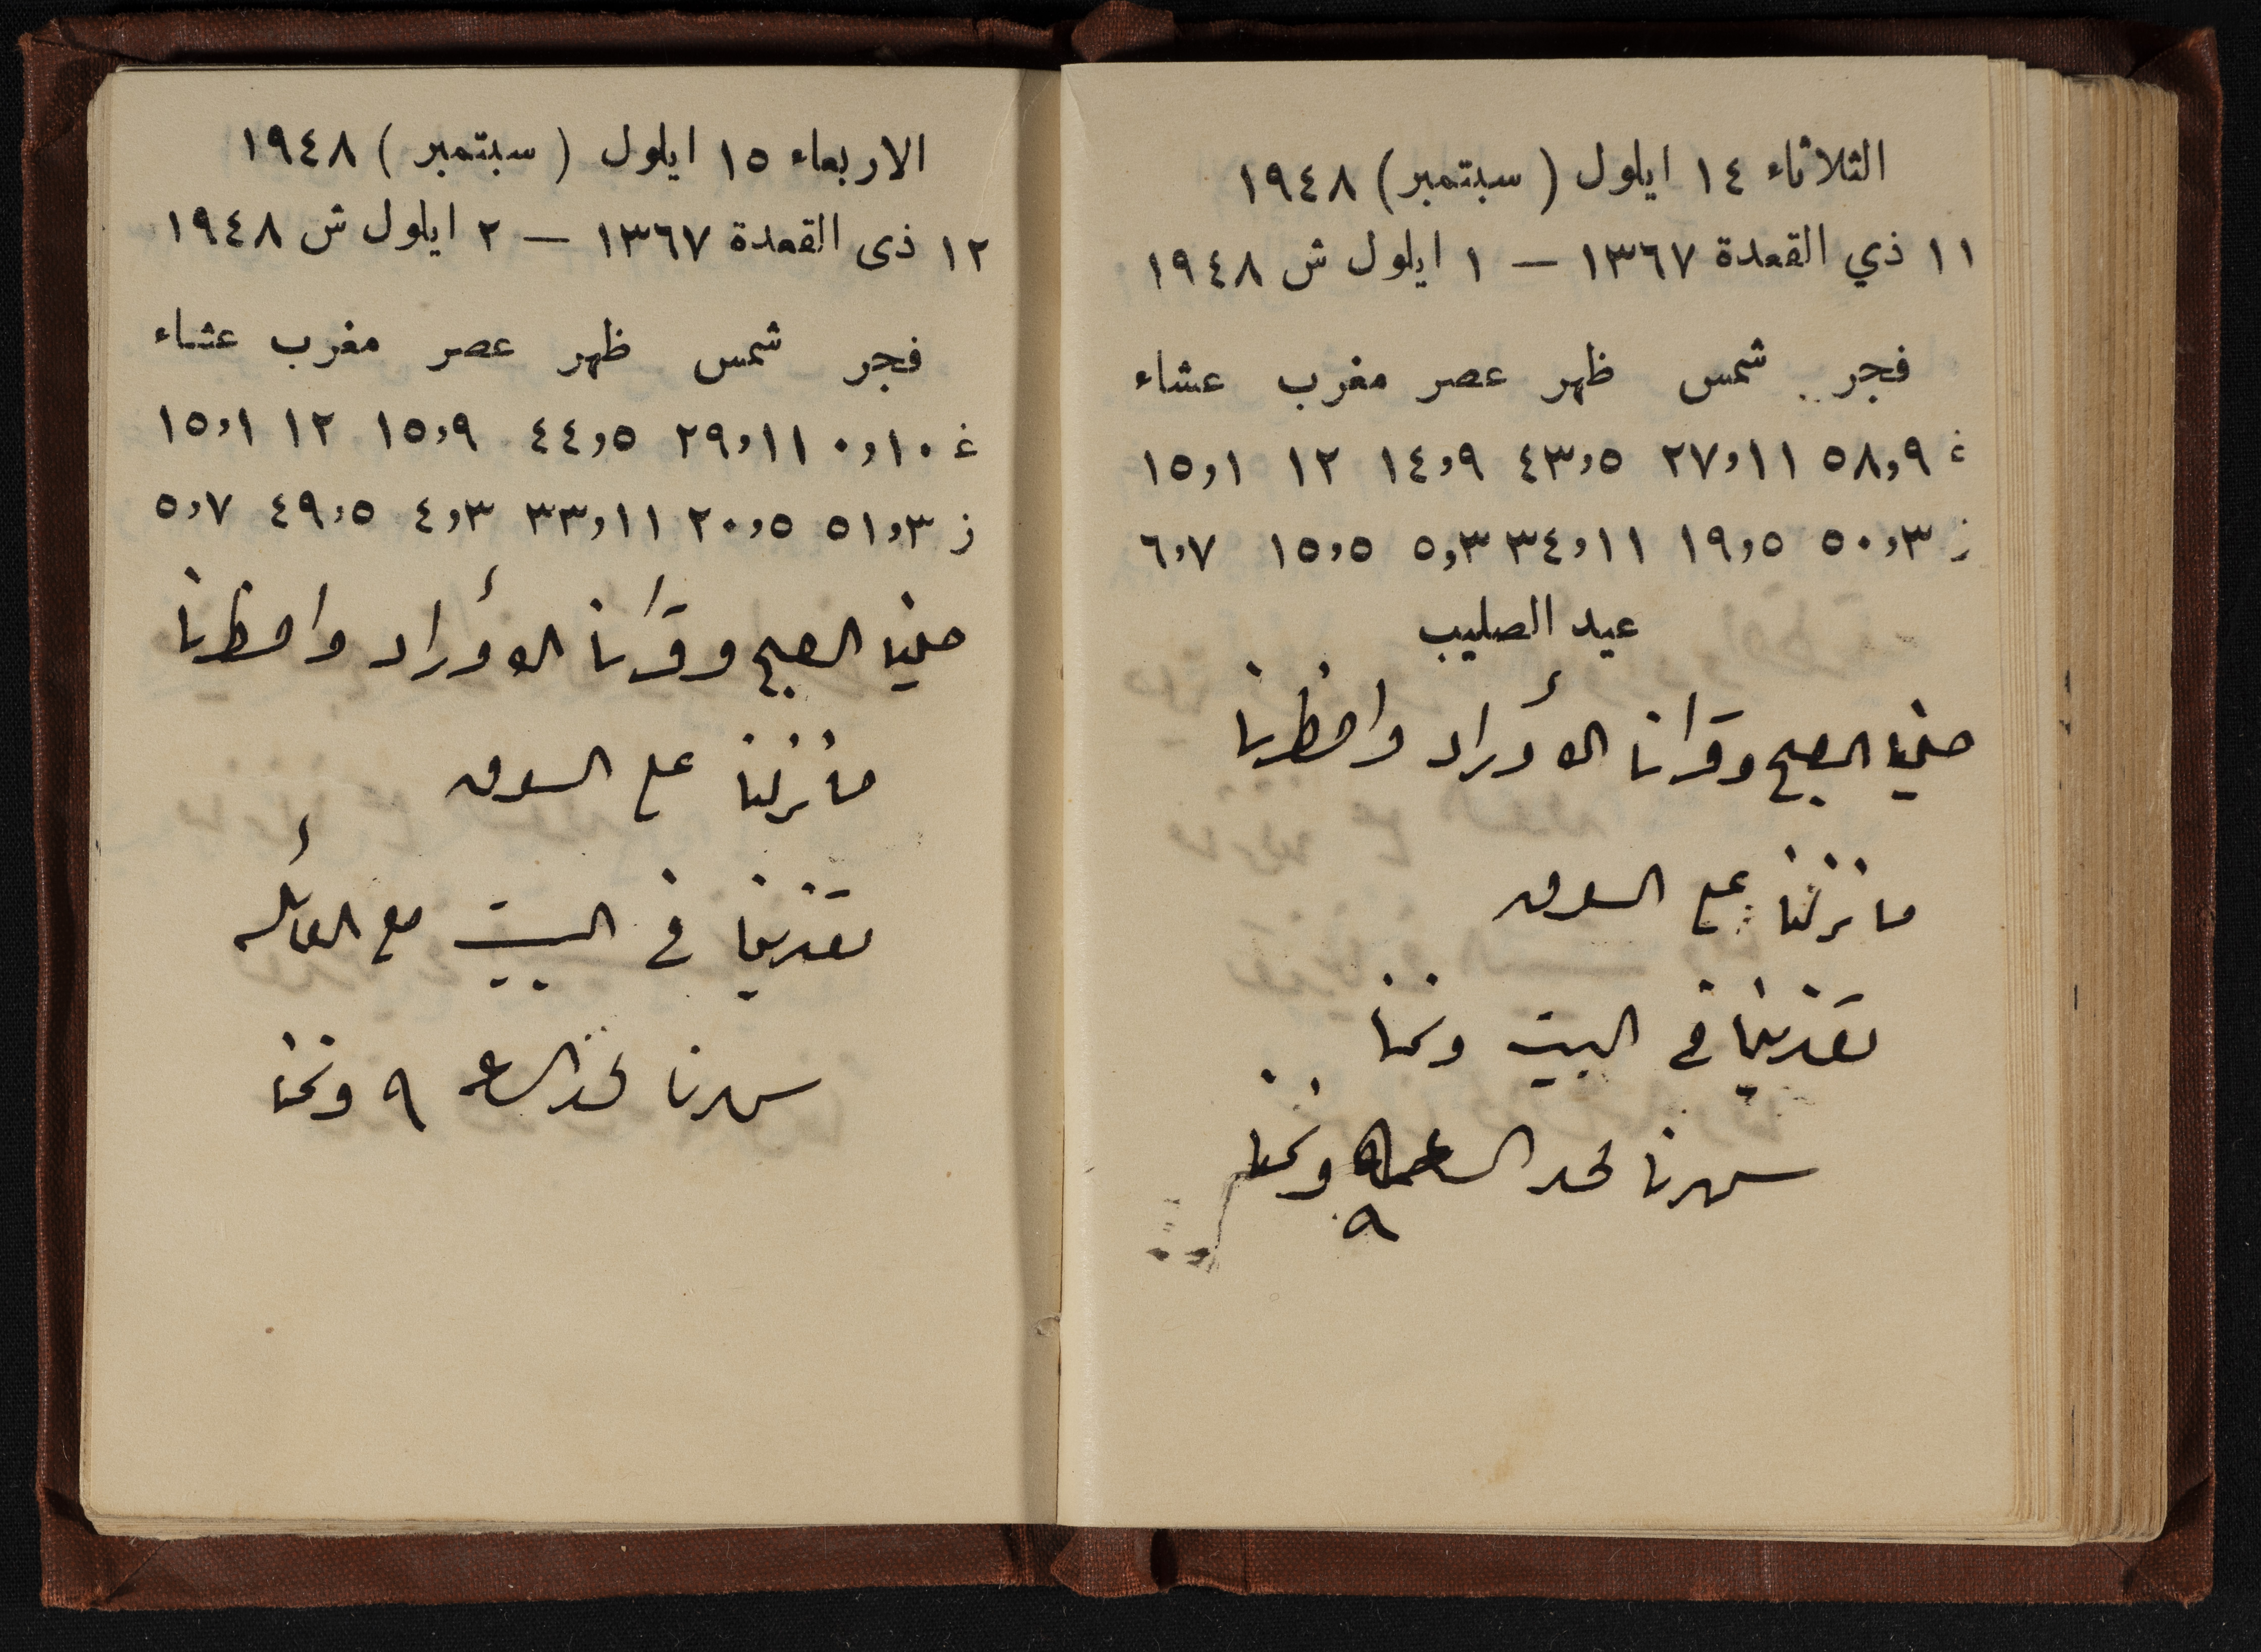 الثلاثاء ١٤ ايلول (سبتمبر) ١٩٤٨
١١ ذي القعدة ١٣٦٧ — ١ ايلول ش ١٩٤٨
فجر شمس ظهر عصر مغرب عشاء
غ ٥٨,٩ ٢٧,١١ ٤٣,٥ ١٤,٩ ١٢ ١٥,١
ز ٥٠,٣ ١٩,٥ ٣٤,١١ ٥,٣ ١٥,٥ ٦,٧
عيد الصليب
صلينا الصبح وقرأنا الأوراد وافطرنا
ما نزلنا على السوق
تغدينا في البيت ونمنا
سهرنا لحد الساعة ٩ ونمنا
الاربعاء ١٥ ايلول (سبتمبر) ١٩٤٨
١٢ ذى القعدة ١٣٦٧ — ٢ ايلول ش ١٩٤٨
فجر شمس ظهر عصر مغرب عشاء
غ ٠,١٠ ٢٩,١١ ٤٤,٥ ١٥,٩ ١٢ ١٥,١
ز ٥١,٣ ٢٠,٥ ٣٣,١١ ٤,٣ ٤٩,٥ ٥,٧
صلينا الصبح وقرأنا الأوراد وافطرنا
ما نزلنا على السوق
تغدينا في البيت مع العائلة
سهرنا لحد الساعة ٩ ونمنا